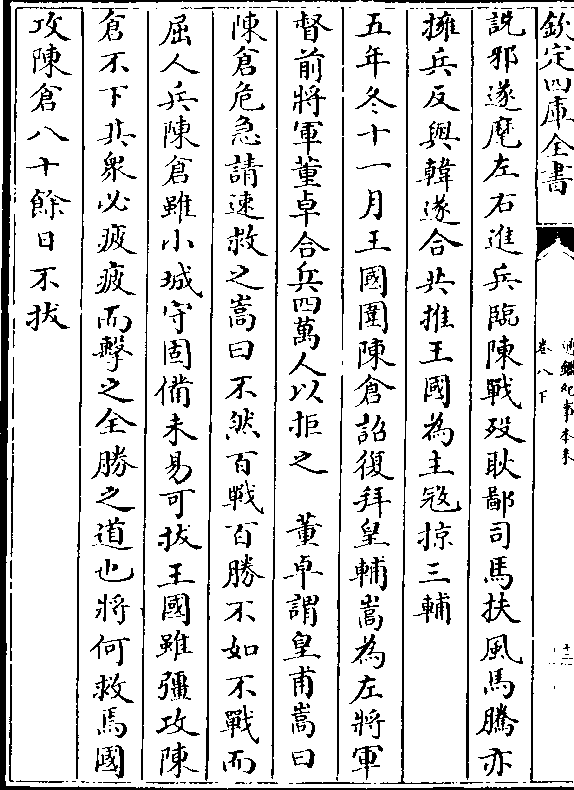 欽定四庫全書
通鑑紀事本末
卷八下
十二
說邪遂麾左右進兵臨陳戰歿耿鄙司馬扶風馬騰亦
擁兵反與韓遂合共推王國為主寇掠三輔
五年冬十一月王國圍陳倉詔復拜皇輔嵩為左將軍
督前將軍董卓合兵四萬人以拒之　董卓謂皇甫嵩曰
陳倉危急請速救之嵩曰不然百戰百勝不如不戰而
屈人兵陳倉雖小城守固備未易可拔王國雖彊攻陳
倉不下其衆必疲疲而擊之全勝之道也將何救焉國
攻陳倉八十餘日不拔